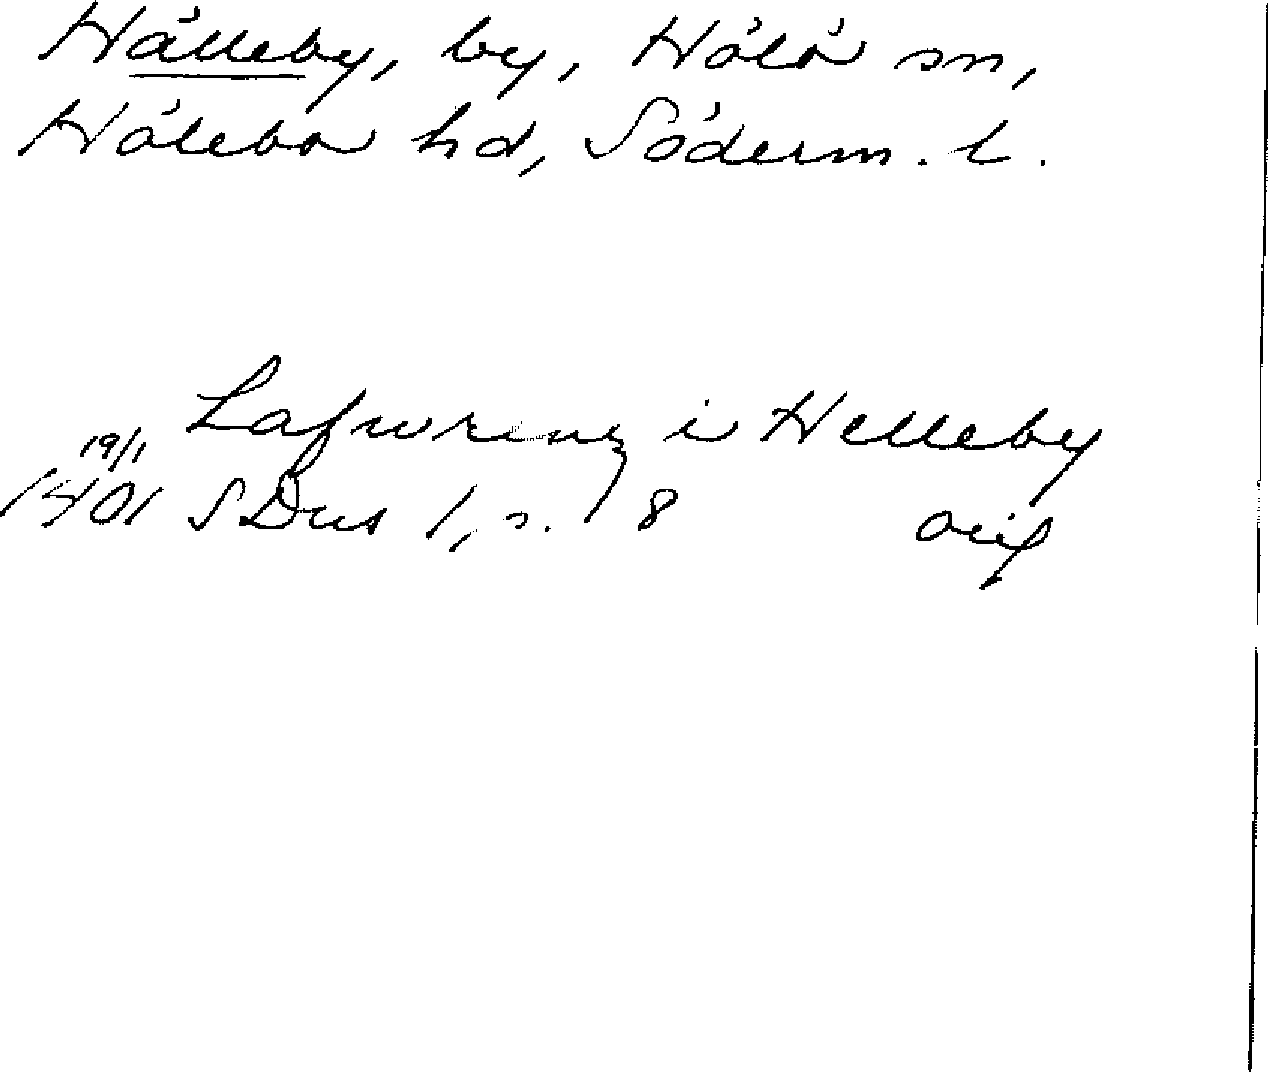 Hälleby, by, Hölö sn,
Hölebo hd, Söderm. l.
Lafwrenz i Helleby
19/1
1401 SDns 1, s. 18 orig